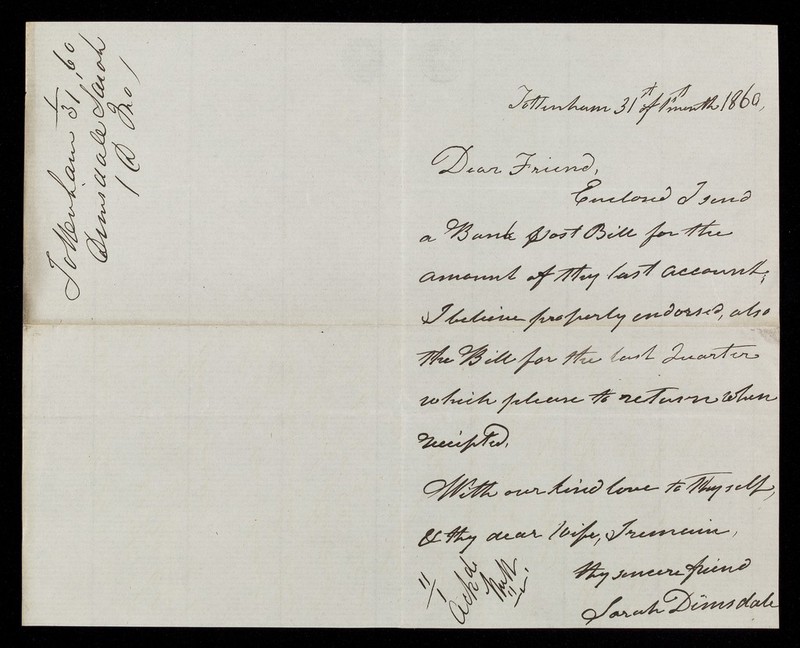 Tottenham 31/1 60
Dimsdale Sarah
Tottenham 31st of 1st month 1860,
Dear Friend,
Enclosed I send
a Bank Post Bill for the
amount of thy last account,
I believe properly endorsed, also
the Bill for the last Quarter
which please to return when
receipted.
With our kind love to Thyself,
& thy dear Wife, I remain,
thy sincere friend
Sarah Dimsdale
Ackd